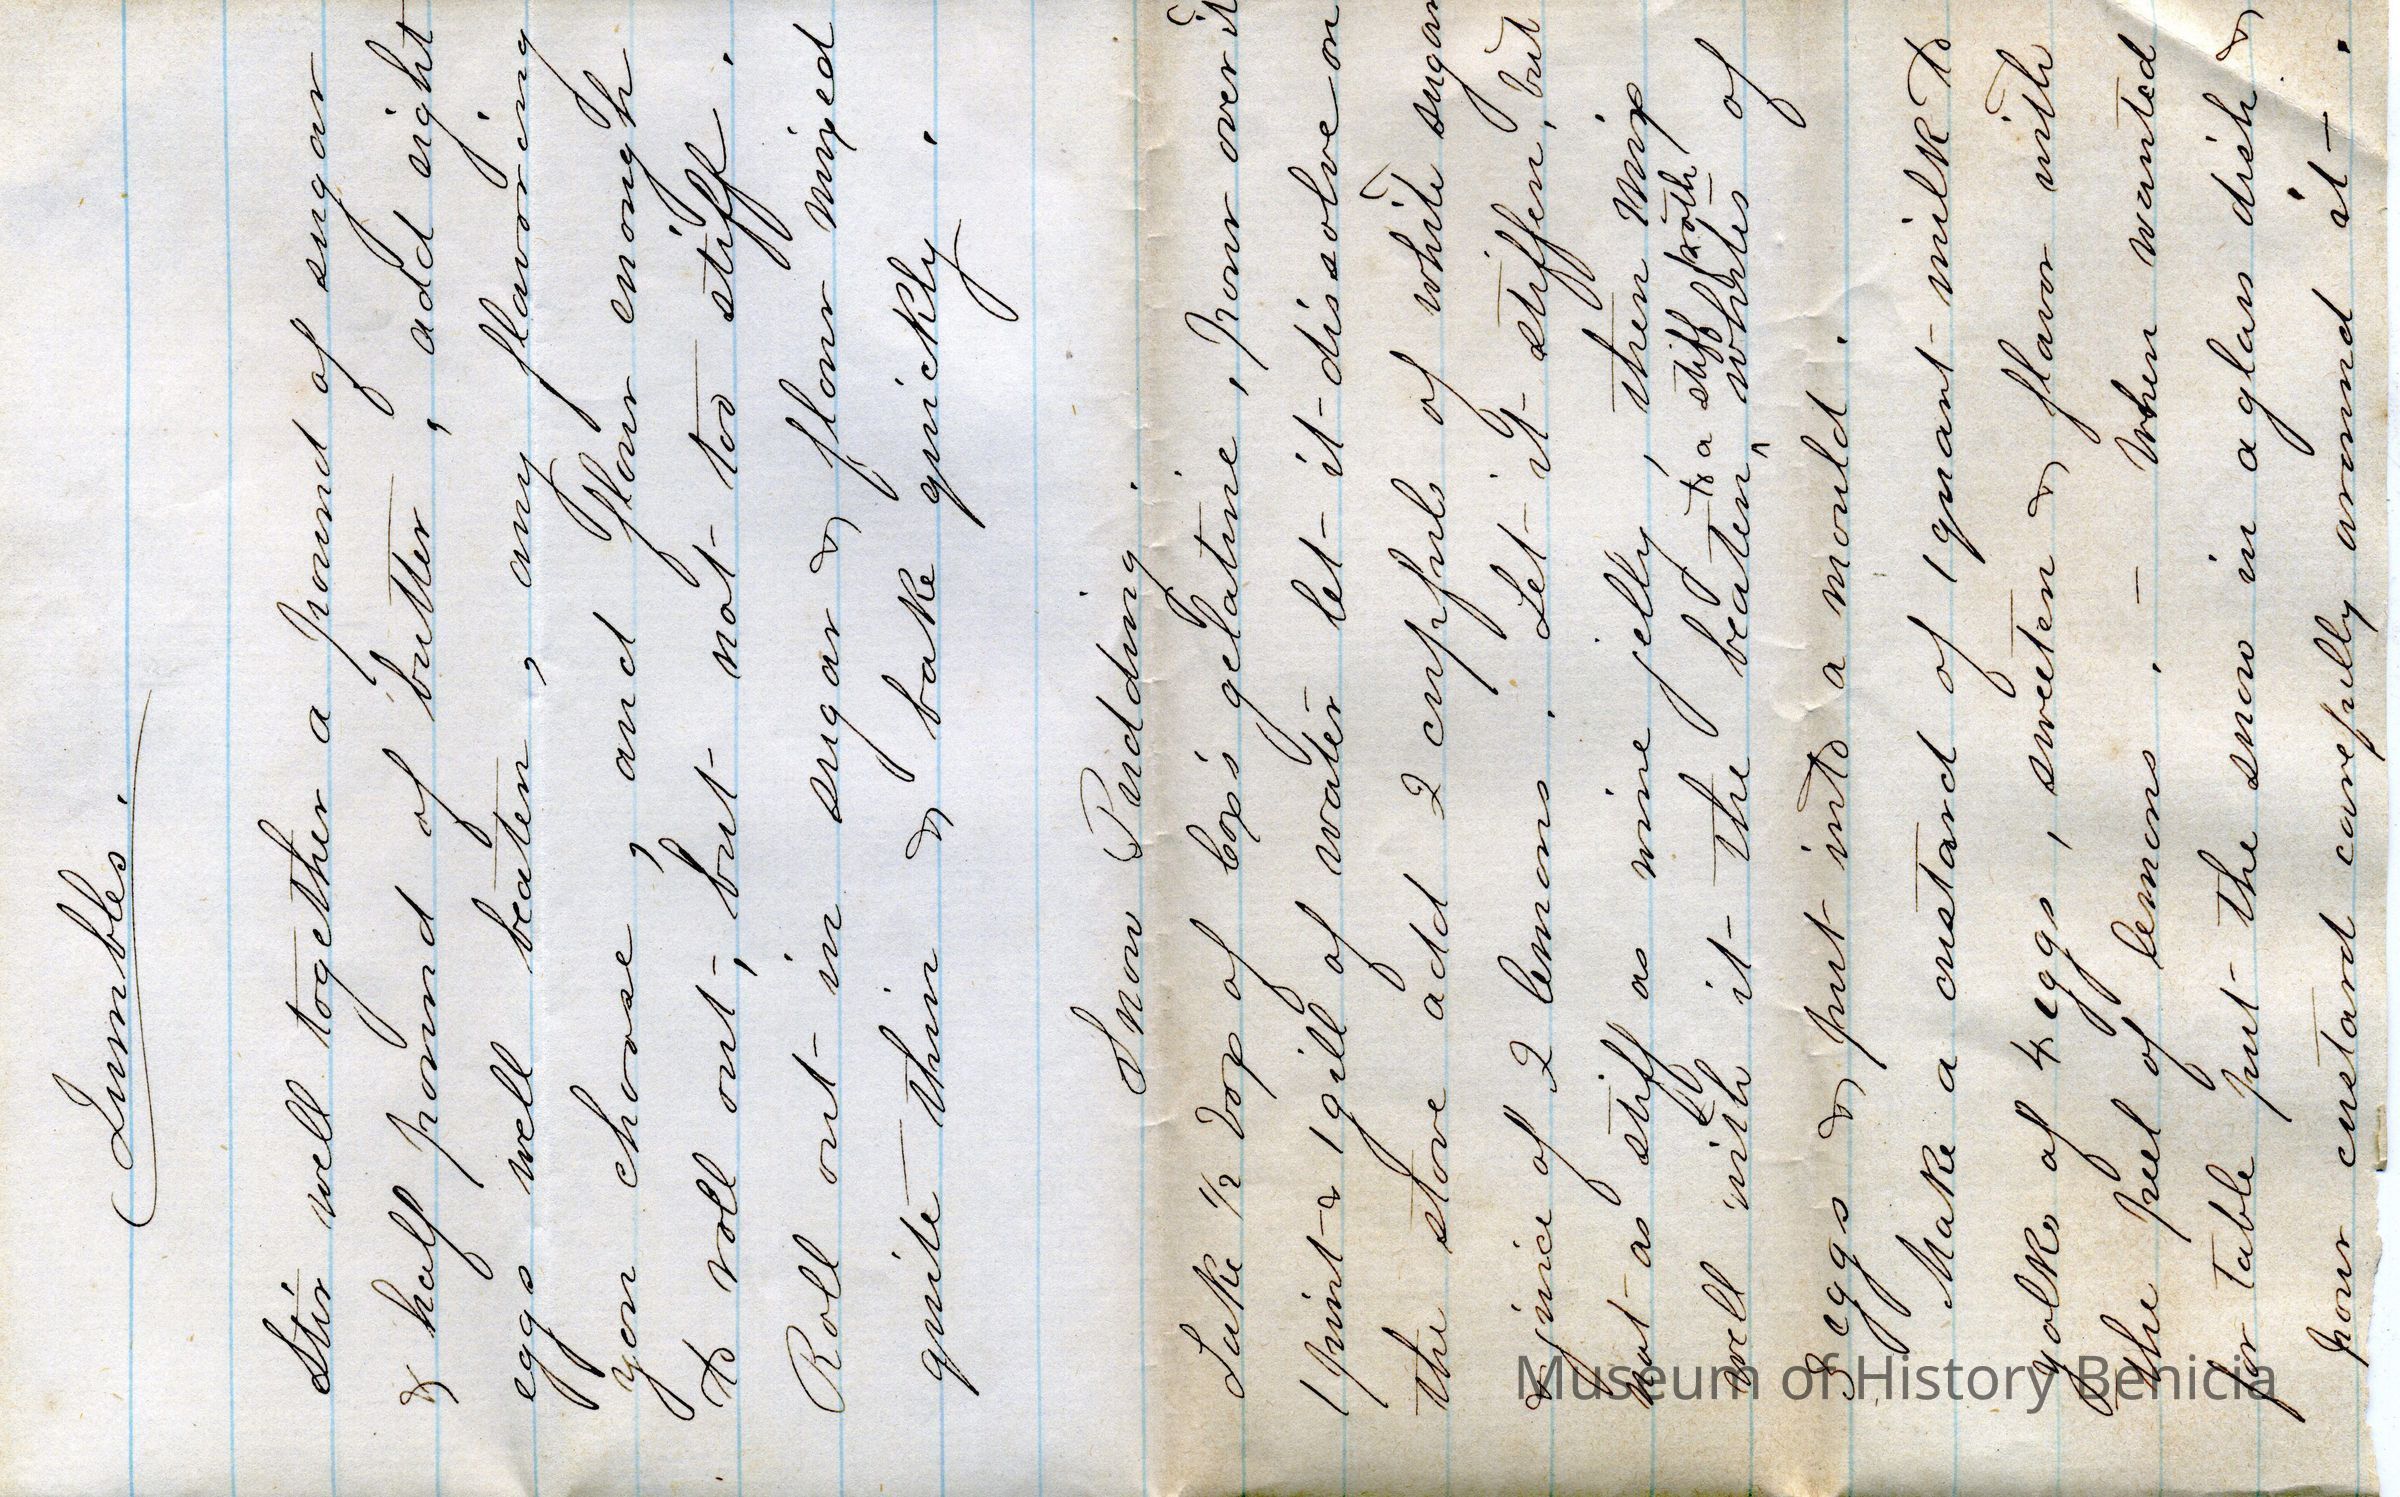 Jumbles.
Stir well together a pound of sugar
& half pound of butter, add eight
eggs well beaten, any flavoring
you choose, and flour enough
to roll out, but not too stiff.
Roll out in sugar & flour mixed
quite thin & bake quickly.
Snow Pudding.
Take 1/2 box of Cox's gelatine, pour over it
1 pint & 1 gill of water let it disolve on
the stove add 2 cupfuls of white sugar
& juice of 2 lemons. Let it stiffen, but
not as stiff as wine jelly, then mix
to a stiff froth
well with it the beaten ^ whites of
3 eggs & put into a mould.
Make a custard of 1 quart milk to
yolks of 4 eggs, sweeten & flavor with
the peel of lemons. — When wanted
for table put the snow in a glass dish &
pour custard carefully around it.
Museum of History Benicia